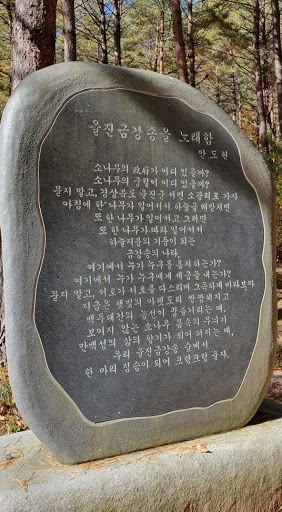 울진금강송을 노래함
안도현
소나무의 政府가 어디 있을까?
소나무의 궁궐이 어디 있을까?
묻지 말고, 경상북도 울진군 서면 소광리로 가자
아침에 한 나무가 일어서서 하늘을 떠받치면
또 한 나무가 일어서고 그러면
또 한 나무가 따라 일어서서
하늘지붕의 기둥이 되는
금강송의 나라,
여기에서 누가 누구를 통치하는가?
여기에서 누가 누구에게 세금을 내는가?
묻지 말고, 서로가 서로를 다스리며 그윽하게 바라보자
지금은 햇빛의 아랫도리 짱짱해지고
백두대간의 능선이 꿈틀거리는 때,
보이지 않는 소나무 몸속의 무늬가
만백성의 삶의 향기가 되어 퍼지는 때,
우리 울진금강송 숲에서
한 마리 짐승이 되어 크렁크렁 울자.